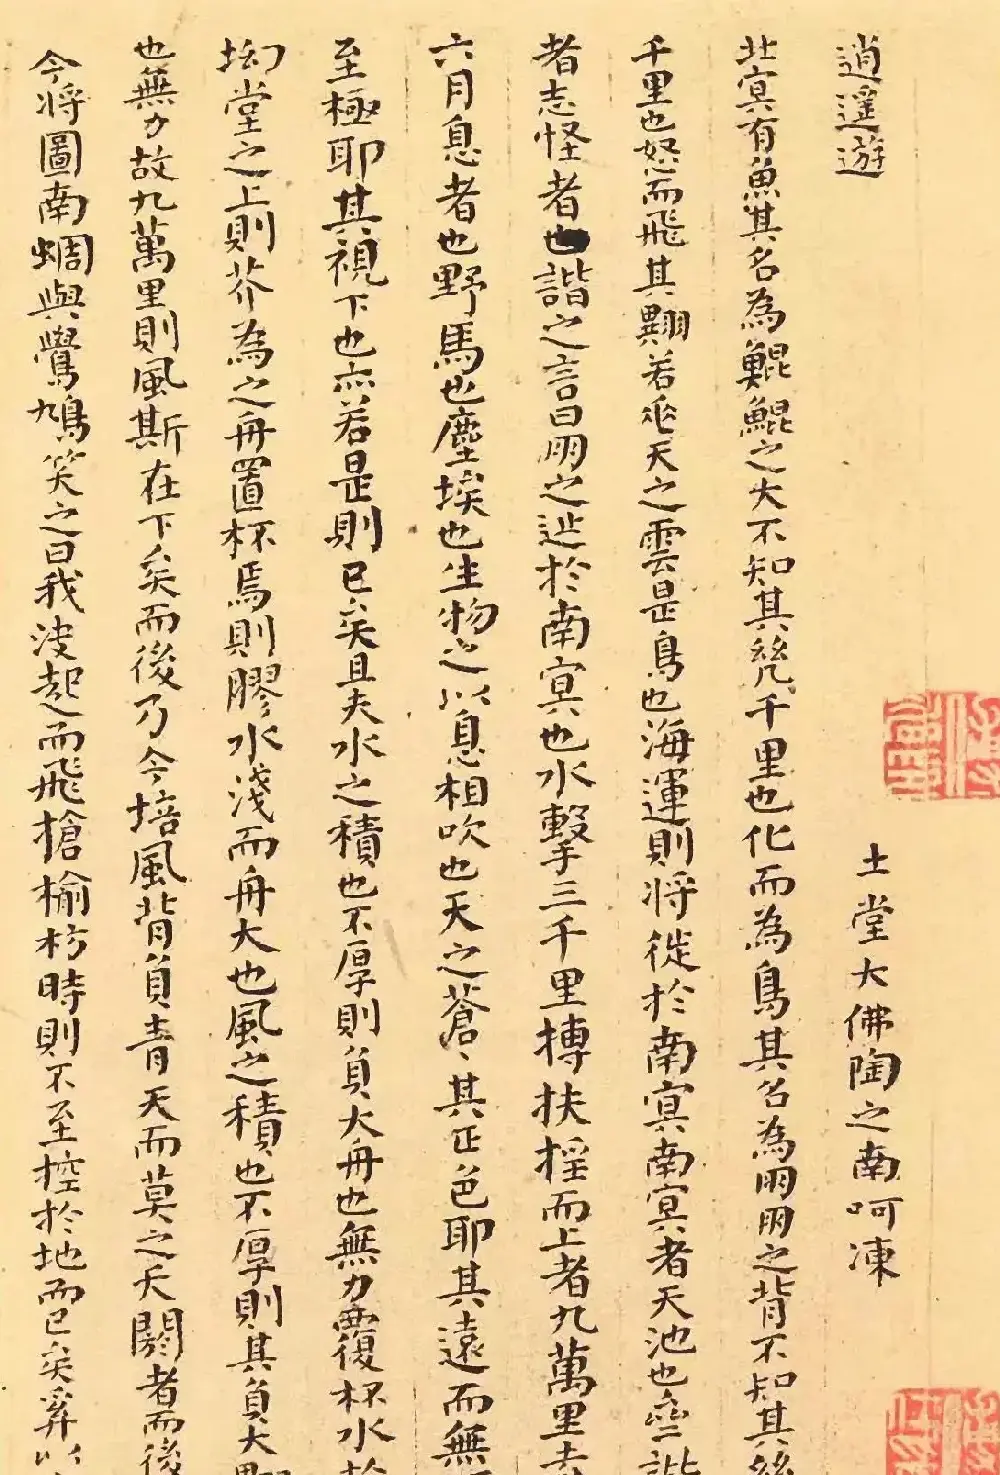 逍遥遊
土堂大佛陶之南呵凍
北冥有魚其名為鯤鯤之大不知其幾千里也化而為鳥其名為朋朋之背不知其幾
千里也怒而飛其翼若垂天之雲是鳥也海運則将徙於南冥南冥者天池也齊諧
者志怪者也諧之言曰朋之逝於南冥也水擊三千里摶扶揺而上者九萬里去
六月息者也野馬也塵埃也生物之以息相吹也天之蒼〻其正色耶其遠而無
至極耶其視下也亦若是則已矣且夫水之積也不厚則負大舟也無力覆杯水於
坳堂之上則芥為之舟置杯焉則膠水淺而舟大也風之積也不厚則其負大翼
也無力故九萬里則風斯在下矣而後乃今培風背負青天而莫之夭閼者而後
今将圖南蜩與鷽鳩笑之曰我決起而飛槍榆枋時則不至控於地而已矣奚以